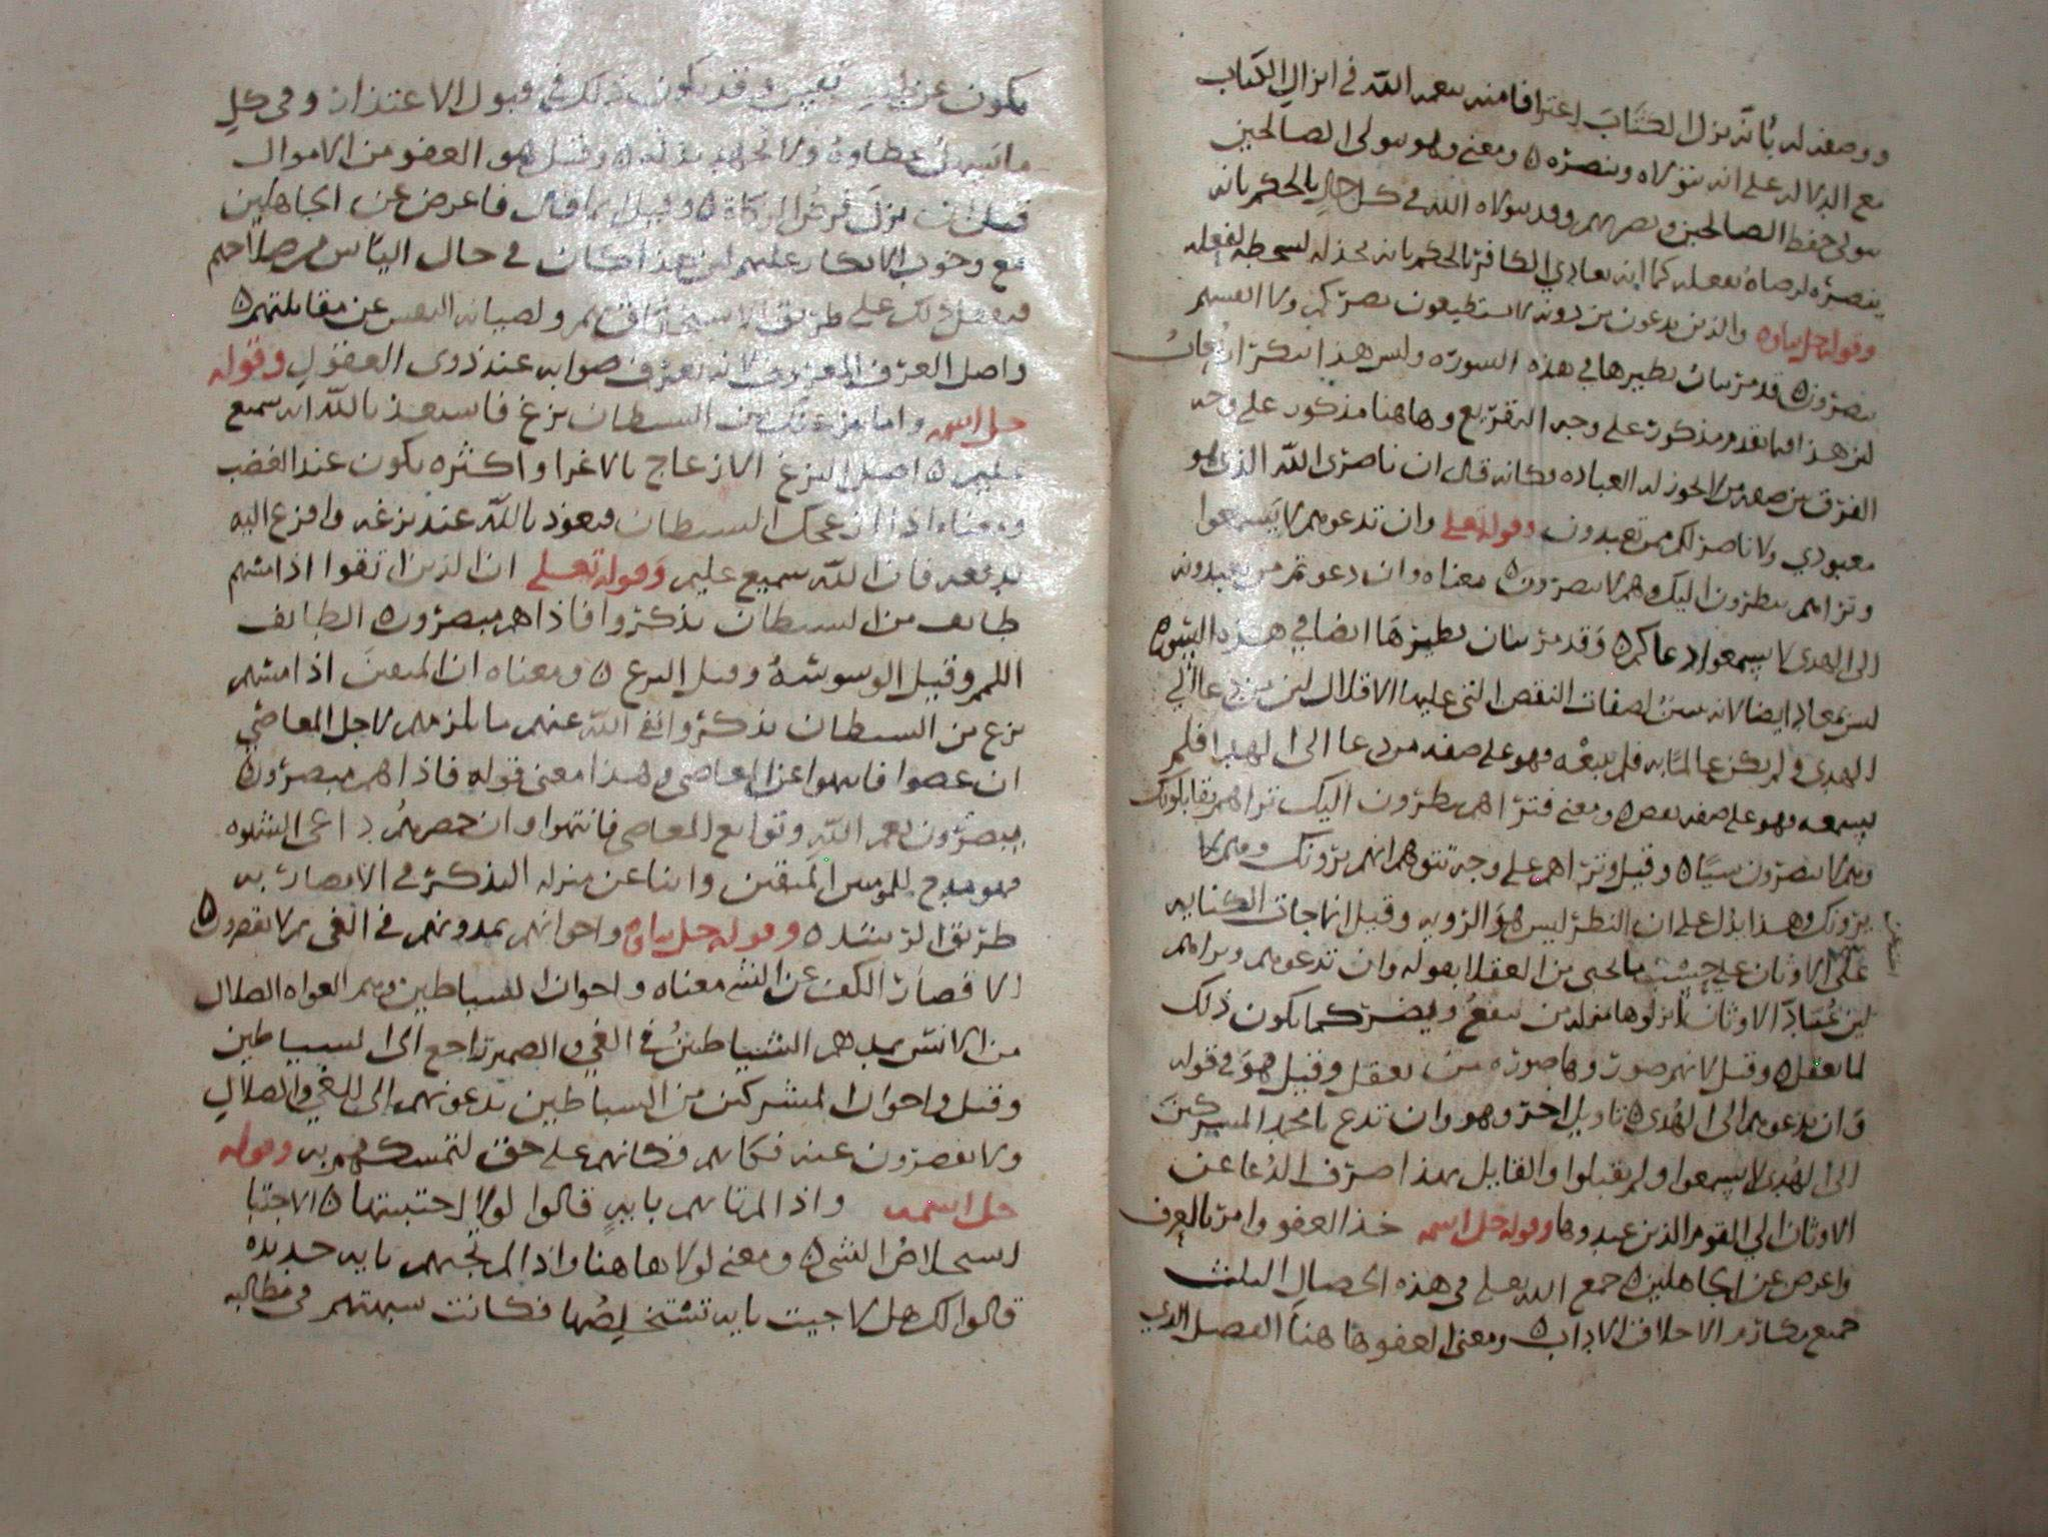 ووصفه له بأنه نزل الكتاب اعترافا منه بنعمه الله في انزال الكتاب
مع الدلاله على انه يتولاه وينصره ومعنى وهو يتولى الصالحين
يتولى حفظ الصالحين ونصرهم وقد يتولاه الله في كل حال بالحكم بانه
ينصره لرضاه بفعله كما انه يعادي الكافر بالحكم بانه يخذله لسخطه لفعله
وقوله جل ثناؤه والذين يدعون من دونه لا يستطيعون نصركم ولا انفسهم
ينصرون قد مر بيان نظيرها في هذه السوره وليس هذا بتكرار
لان هذا فيما تقدم مذكور على وجه التقريع وهاهنا مذكور على وجه
الفرق بين صفه من لا تجوز له العباده فكانه قال ان ناصري الله الذي هو
معبودي ولا ناصر لكم ممن تعبدون وقوله تعلى وان تدعوهم لا يسمعوا
وتراهم ينظرون اليك وهم لا يبصرون معناه وان دعوتم من تعبدونه
الى الهدى لا يسمعوا دعاكم وقد مر بيان نظيرها ايضا في هذه السوره
ليس بمعاد ايضا لانه بين لصفات النقص التي عليها الاقلال لان من دعا الي
الهدى ولم يكن عالما به فلم يتبعه فهو على صفه من دعا الى الهدا فلم
يسمعه فهو على صفه نقص ومعنى فتراهم ينظرون اليك تراهم يقابلونك
وهم لا يبصرون شيا وقيل وتراهم على وجه تتوهم انهم يرونك وهم لا
يرونك وهذا يدل على ان النظر ليس هو الرويه وقيل انما جات الكنايه
على الاوثان على حسب ما تجي من العقلا بقوله وان تدعوهم وتراهم
لان عباد الاوثان انزلوها منزله من ينفع ويضر كما يكون ذلك
لما يعقل وقيل لانهم صوروها صوره من يعقل وقيل هو في قوله
وان تدعوهم الى الهدى تاويل اخر وهو وان تدع يا محمد المشركين
الى الهدى لا يسمعوا ولم يقبلوا والقايل بهذا صرف الدعا عن
الاوثان الي القوم الذين عبدوها وقوله جل اسمه خذ العفو وامر بالعرف
واعرض عن الجاهلين جمع الله تعلى في هذه الخصال الثلث
جميع مكارم الاخلاق الاداب ومعنى العفو ها هنا الفضل الذي
يكون عن طيب نفس وقد يكون ذلك في قبول الاعتذار وفي كل
ما تسهل عطاوه ولا يجهد بذله وقيل هو العفو من الاموال
قبل ان ينزل فرض الزكاة وقيل انما قال فاعرض عن الجاهلين
مع وجوب الانكار عليهم لان هذا كان في حال الياس من صلاحهم
فيفعل ذلك على طريق الاستخفاف بهم ولصيانه النفس عن مقابلتهم
واصل العرف المعروف لانه يعرف صوابه عند ذوى العقول وقوله
جل اسمه واما ينزغنك من الشيطان نزغ فاستعذ بالله انه سميع
عليم اصل النزغ الازعاج بالاغرا واكثره يكون عند الغضب
ومعناه اذا ازعجك الشيطان فتعوذ بالله عند نزغه وافزع اليه
يدفعه فان الله سميع عليم وقوله تعلى ان الذين اتقوا اذا مسهم
طايف من الشيطان تذكروا فاذا هم مبصرون الطايف
اللمم وقيل الوسوسه وقيل النزغ ومعناه ان المتقين اذا مسهم
نزغ من الشيطان تذكروا نهي الله عنهم ما يلزمهم لاجل المعاصي
ان عصوا فانتهوا عن المعاصي وهذا معنى قوله فاذا هم مبصرون
يبصرون نعم الله وتوابع المعاصي فانتهوا وان حضرهم داعي الشهوه
فهو مدح للمومنين المتقين وابنا عن منزله التذكر في الابصار به
طريق الرشد وقوله جل ثناؤه واخوانهم يمدونهم في الغي ثم لا يقصرون
الاقصار الكف عن الشي معناه واخوان الشياطين وهم الغواه الضلال
من الانس يمدهم الشياطين في الغي والضمير راجع الى الشياطين
وقيل واخوان المشركين من الشياطين يدعونهم الى الغي والضلال
ولا يقصرون عنه فكانهم على حق لتمسكهم به وقوله
جل اسمه واذا لم تاتهم بايه قالوا لولا اجتبيتها الاجتبا
استخلاص الشي ومعنى لولا هاهنا واذا لم تجيهم بايه جديده
قالوا لك هل لا جيت بايه تستخلصها فكانت سبهتهم في مطالبه